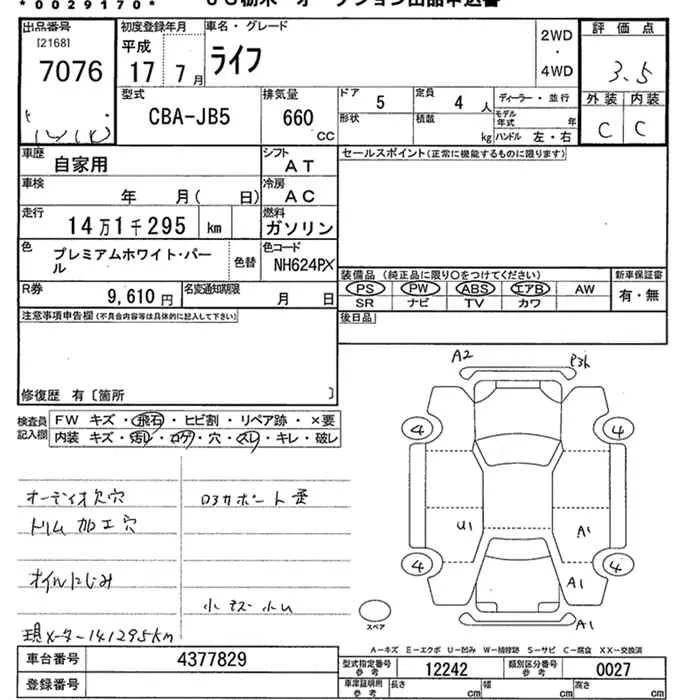 *0029170*
出品番号 [2168] 7076
初度登録年月 平成 17 7月
車名・グレード ライフ
2WD ・ 4WD
評価点 3.5
外装 内装
C C
型式 CBA-JB5
排気量 660 CC
ドア 5
定員 4 人
形状 積載 kg
ディーラー・並行
モデル年式 年
ハンドル 左・右
車歴 自家用
シフト AT
車検 年 月( 日)
冷房 AC
走行 14万1千295 km
燃料 ガソリン
色 プレミアムホワイト・パール
色替
色コード NH624PX
R券 9,610円
名変通知期限 月 日
セールスポイント(正常に機能するものに限ります)
装備品(純正品に限り○をつけてください)
PS PW ABS エアB AW
SR ナビ TV カワ
新車保証書 有・無
後日品
注意事項申告欄(不具合内容等は具体的に記入して下さい)
修復歴 有〔箇所 〕
検査員記入欄
FW キズ・飛石・ヒビ割・リペア跡・×要
内装 キズ・汚れ・コゲ・穴・スレ・キレ・破レ
オーディオ欠穴
トリム加工穴
オイルにじみ
小キズ小凹
現メーター141295km
A2
4 4
U1 A1
4 4
A1
A1
スペア
A-キズ E-エクボ U-凹み W-補修跡 S-サビ C-腐食 XX-交換済
車台番号 4377829
登録番号
型式指定番号 参考 12242
類別区分番号 参考 0027
車庫証明用 参考 長さ cm 幅 cm 高さ cm